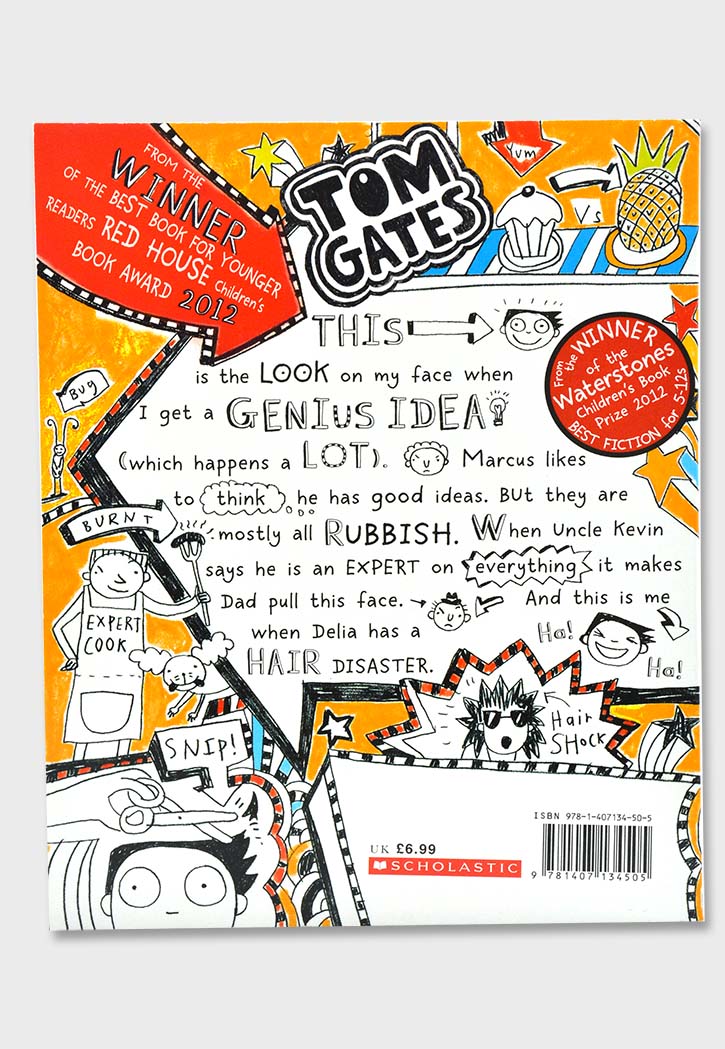 FROM THE
WINNER
OF THE BEST BOOK FOR YOUNGER
READERS RED HOUSE Children's
BOOK AWARD 2012
TOM
GATES
Yum
Vs
THIS
is the LOOK on my face when
I get a GENIUS IDEA!
(which happens a LOT). Marcus likes
to think he has good ideas. But they are
mostly all RUBBISH. When Uncle Kevin
says he is an EXPERT on everything it makes
Dad pull this face. And this is me
when Delia has a
HAIR DISASTER.
From the WINNER
of the
Waterstones
Children's Book
Prize 2012
BEST FICTION for 5-12s
Bug
BURNT
EXPERT
COOK
Ha!
Ha!
Hair
SHock
SNIP!
UK £6.99
SCHOLASTIC
ISBN 978-1-407134-50-5
9 781407 134505